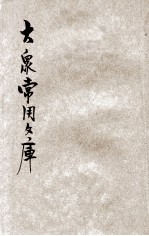 大泉常用文庫